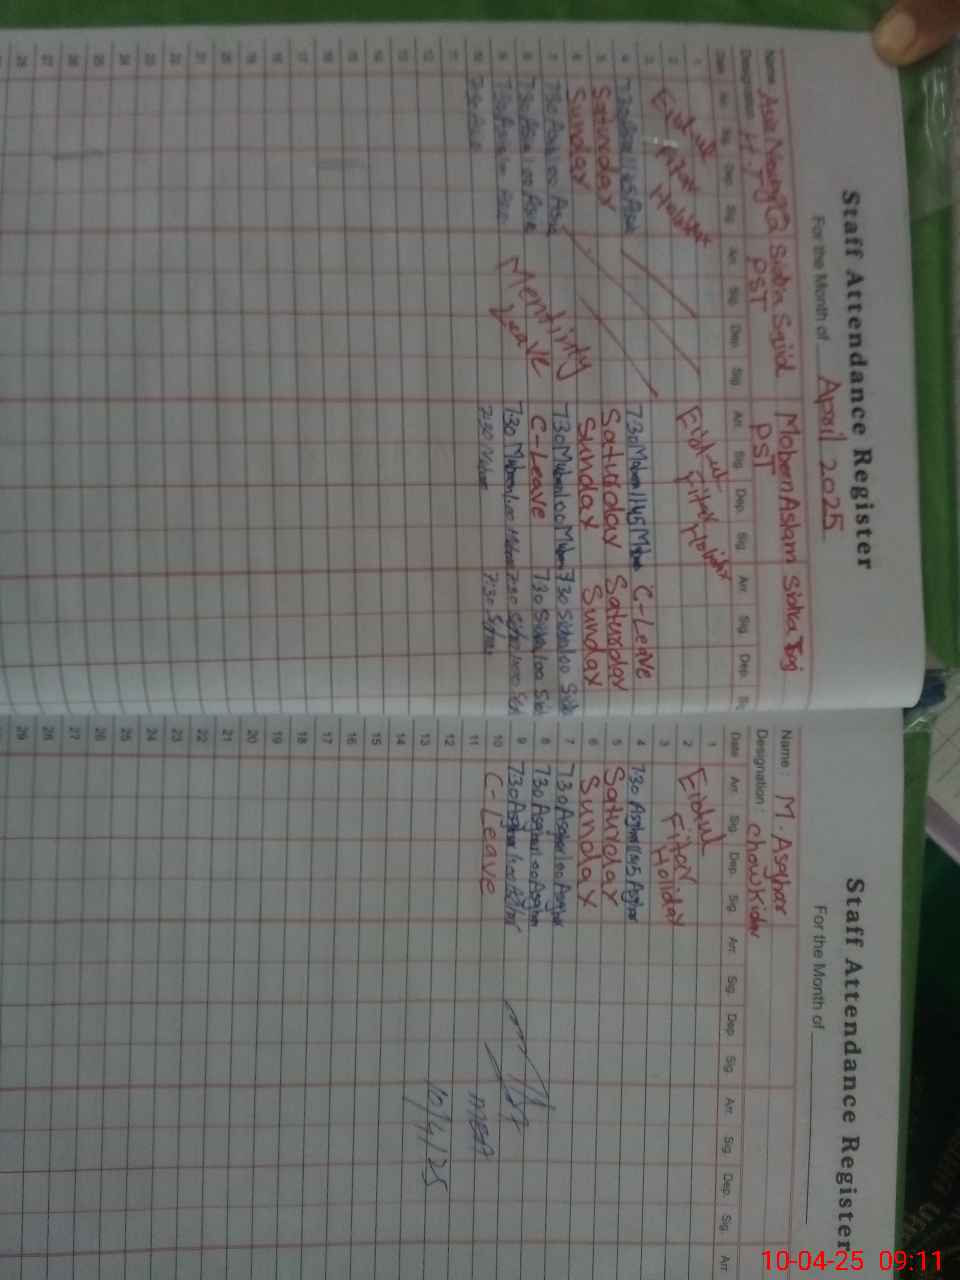 Staff Attendance Register
For the Month of April 2025
Name Sidra Sajid Mobeen Aslam Sidra Taj
Designation H.T PST PST
Date Arr. Sig. Dep. Sig. Arr. Sig. Dep. Sig. Arr. Sig. Dep. Sig. Arr. Sig. Dep.
1
2 Eidul Fitar Holiday Eidul Fitar Holiday
3
4 7:30 11:45 7:30 Mobeen 11:45 C-Leave
5 Saturday Saturday Saturday
6 Sunday Sunday Sunday
7 7:30 Asia 1:00 Asia 7:30 Mobeen 1:00 Mobeen 7:30 Sidra 1:00 Sidra
8 7:30 Asia 1:00 Asia C-Leave 7:30 Sidra 1:00 Sidra
9 7:30 Asia 1:00 Asia Leave 7:30 Mobeen 1:00 7:30 1:00
10 7:30 Asia 7:30 7:30
11
12
13
14
15
16
17
18
19
20
21
22
23
24
25
26
27
28
Staff Attendance Register
For the Month of
Name : M. Asghar
Designation : Chowkidar
Date Arr. Sig. Dep. Sig. Arr. Sig. Dep. Sig. Arr. Sig. Dep. Sig. Arr
1 Eidul
2 Fitar
3 Holiday
4 7:30 Asghar 11:45 Asghar
5 Saturday
6 Sunday
7 7:30 Asghar 1:00 Asghar
8 7:30 Asghar 1:00 Asghar
9 7:30 Asghar 1:00 Asghar
10 C-Leave
11 MEA
12
13 10/4/25
14
15
16
17
18
19
20
21
22
23
24
25
26
27
28
29
10-04-25 09:11